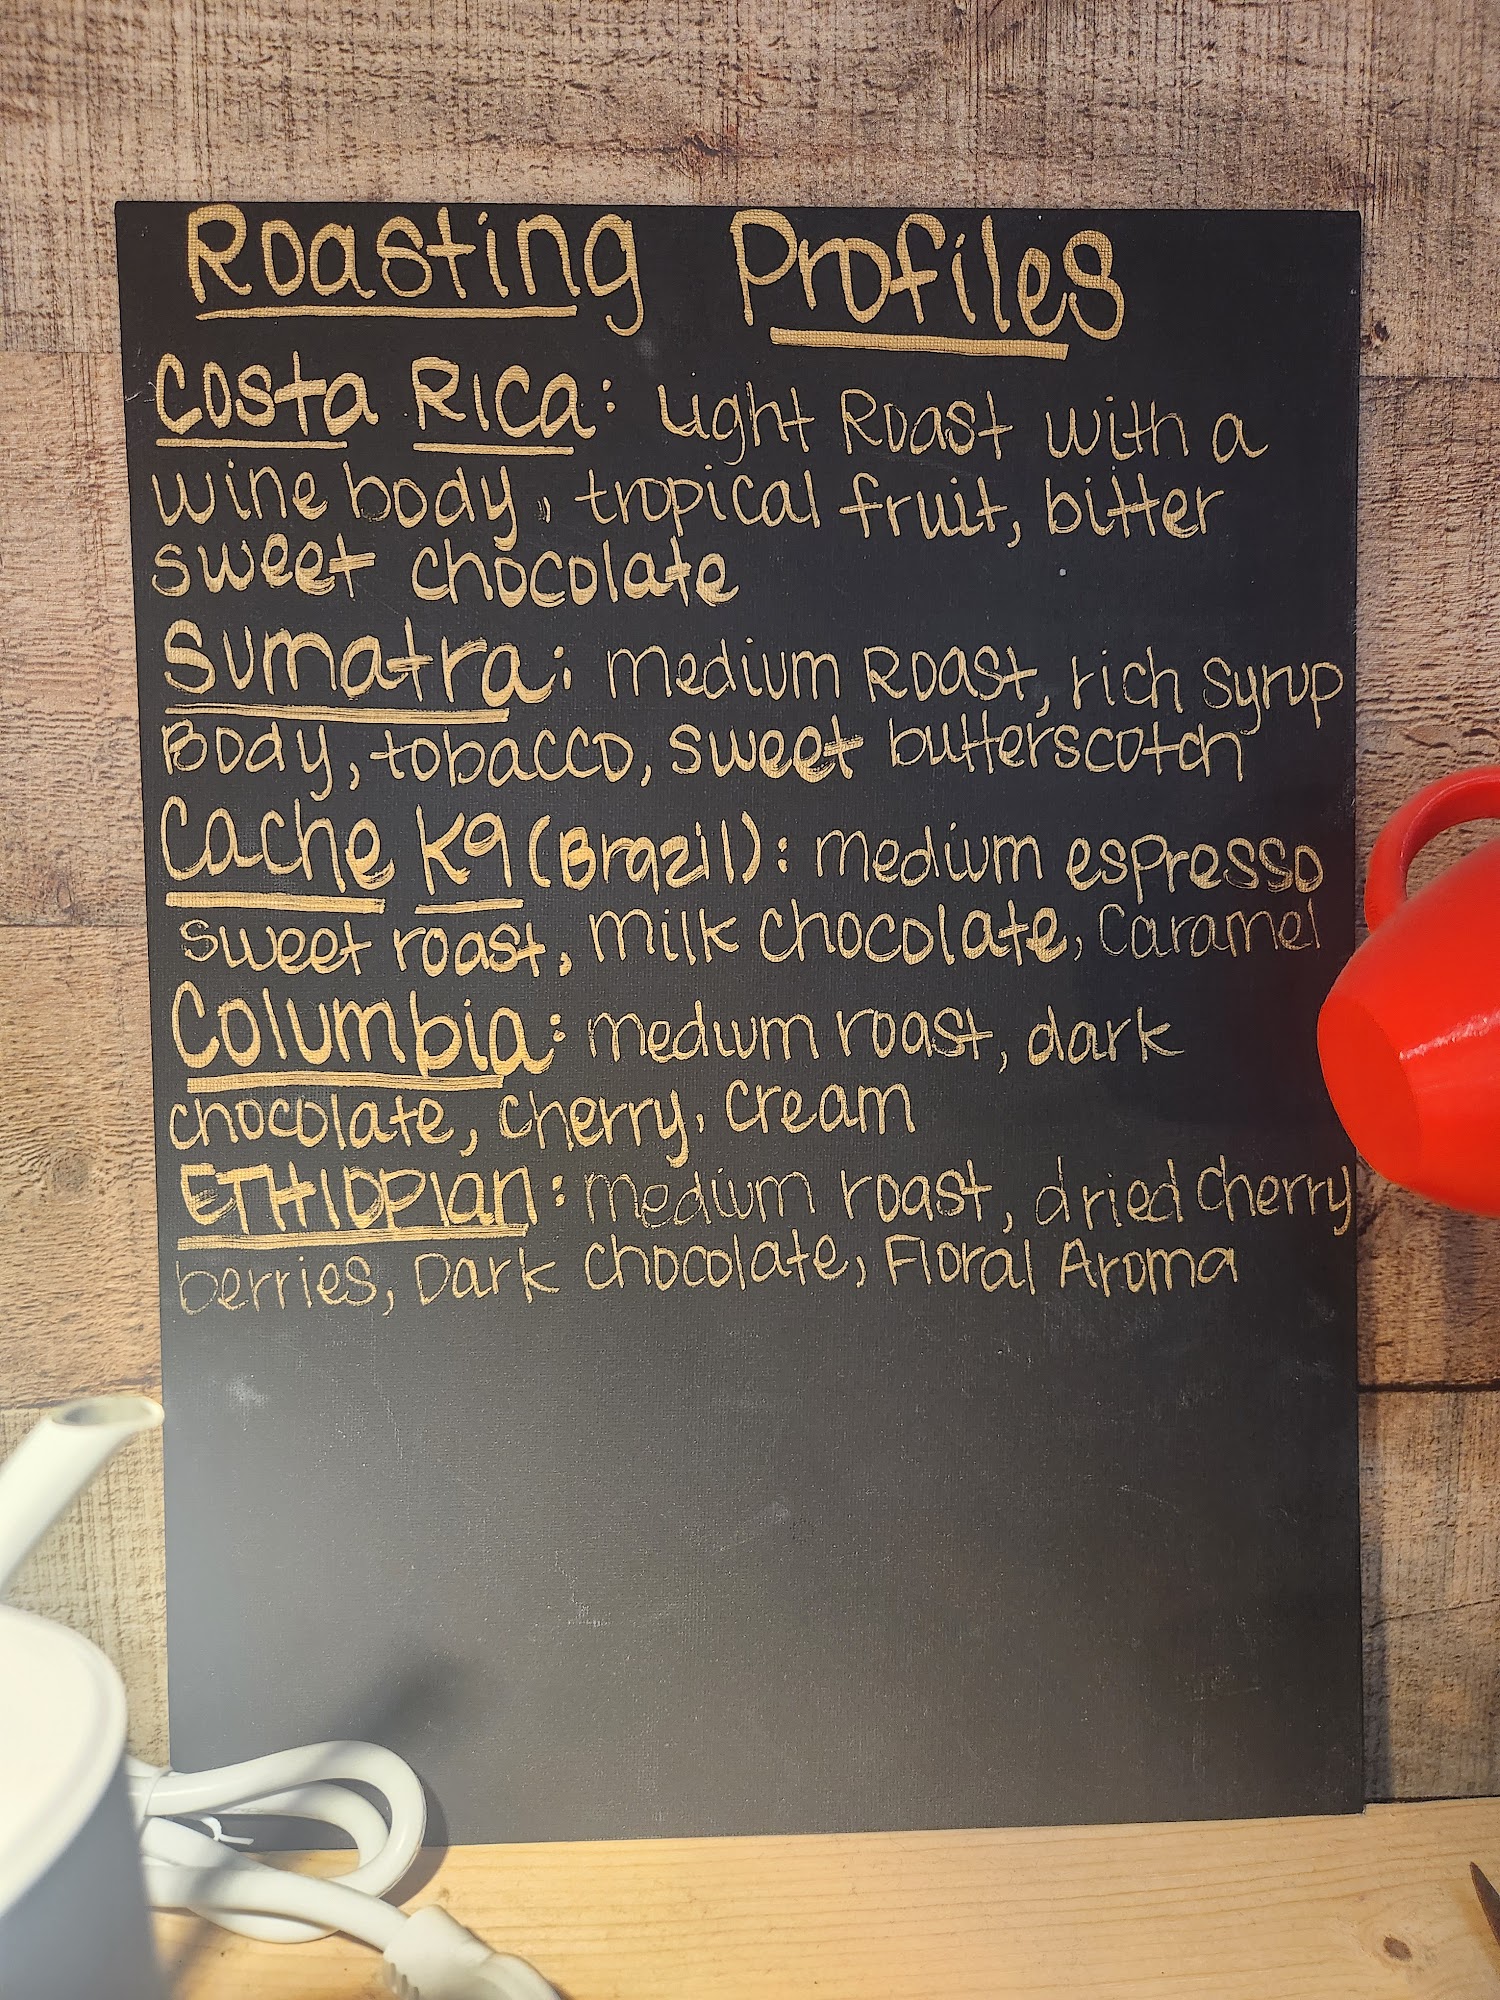 Roasting Profiles
Costa Rica: Light Roast with a
wine body, tropical fruit, bitter
sweet chocolate
Sumatra: medium Roast, rich syrup
Body, tobacco, sweet butterscotch
Cache K9 (Brazil): medium espresso
sweet roast, milk chocolate, Caramel
Columbia: medium roast, dark
chocolate, cherry, cream
ETHIOPIan: medium roast, dried cherry
berries, Dark chocolate, Floral Aroma